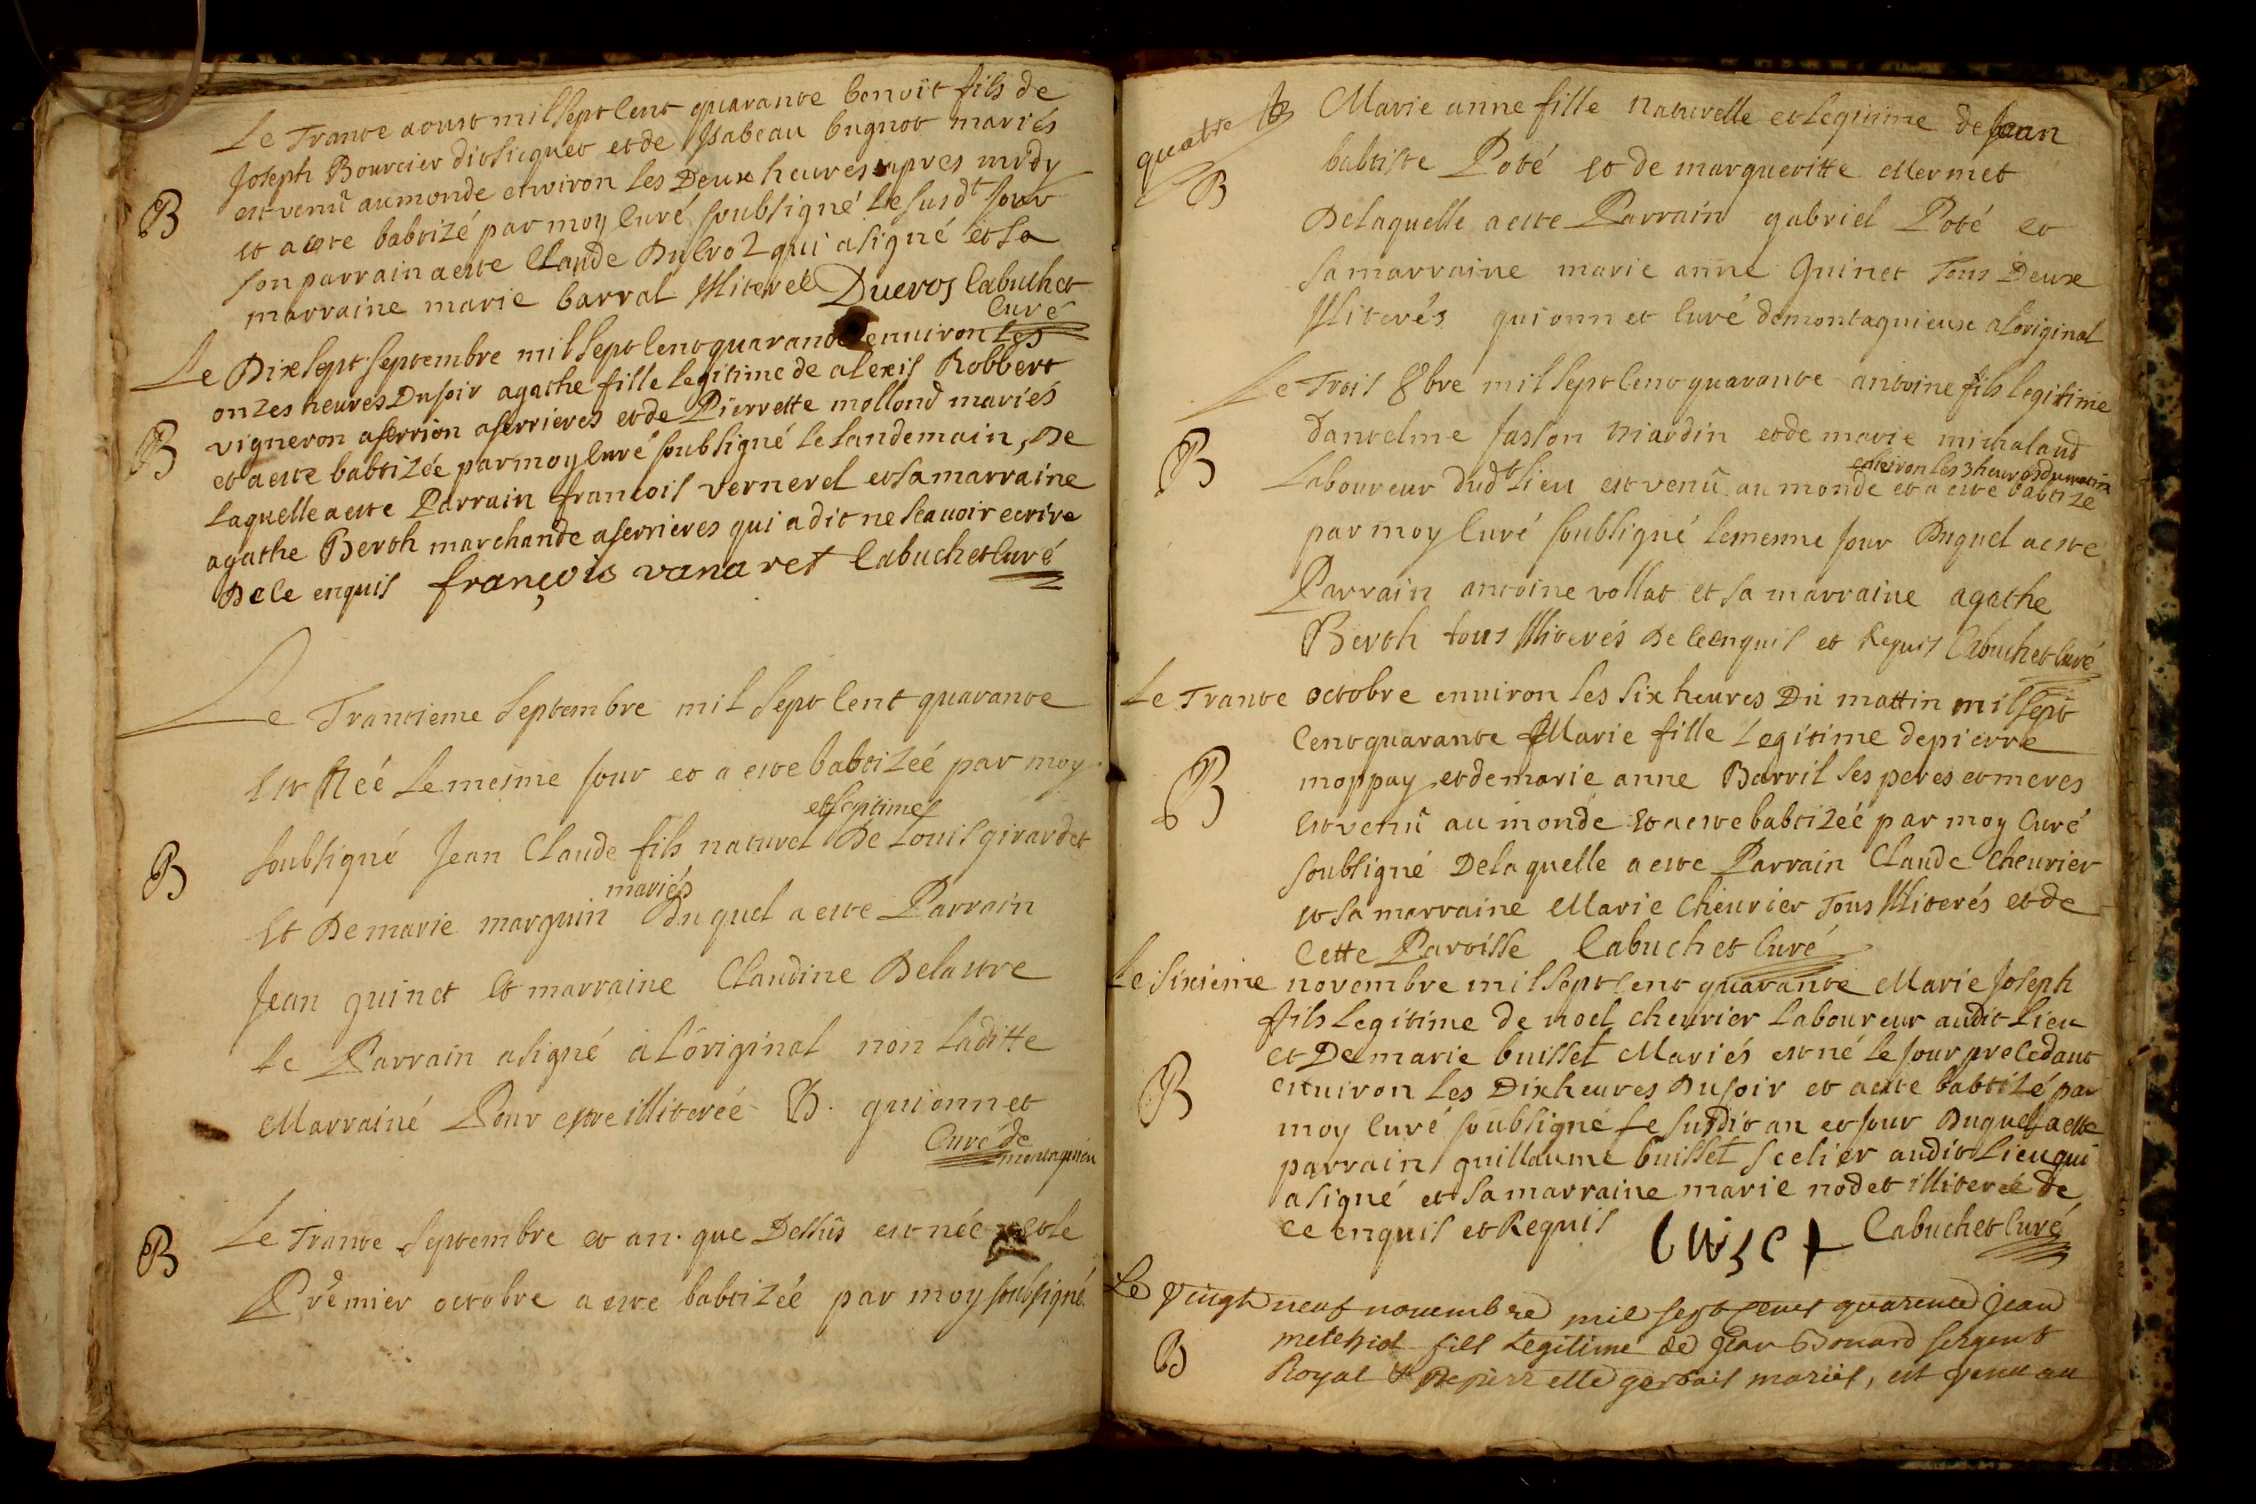 Le Trante aoust mil sept cent quarante benoit fils de
Joseph Bourcier dit sicquet et de Isabeau bugnot mariés
B
est venu au monde environ les Deux heures apres midy
et a este babtizé par moy Curé soubsigné Le susdt jour
son parrain a este Claude Ducroz qui a signé et sa
marraine marie barral Illiterée Ducros Cabuchet
Curé
Le Dix sept septembre mil sept cent quarante environ les
onzes heures Du soir agathe fille legitime de alexis Robbert
B
vigneron a serrieres et de Pierrette mollond mariés
et a este babtizée par moy Curé soubsigné le Landemain, De
Laquelle a este Parrain francois vernerel et sa marraine
agathe Berth marchande a serrieres qui a dit ne scavoir ecrire
De Ce enquis françois vanaret Cabuchet Curé
Le Trantieme septembre mil sept Cent quarante
est Née Le mesme jour et a este babtizéé par moy
et legitime
B
soubsigné Jean Claude fils naturel De Louis girardet
mariés
Et De marie marguin Duquel a este Parrain
Jean guinet Et marraine Claudine Delastre
Le Parrain a signé à L'original non Laditte
Marrainé Pour estre illiterée B. guionnet
Curé de
montagnieu
B
Le Trante septembre et an que Dessus est née et le
Premier octobre a este babtizéé par moy soubsigné
quatre
B
Marie anne fille naturelle et legitime de Jean
babtiste Poté et de margueritte Mermet
De Laquelle a este Parrain gabriel Poté et
sa marraine marie anne guinet Tous Deux
Illiterés guionnet Curé de montagnieux a L'original
Le Trois 8bre mil sept Cent quarante antoine fils legitime
D'antelme Jaslon Niardin et de marie michalaud
environ les 3 heures du matin
B
Laboureur dudt Lieu est venu au monde et a este babtizé
par moy Curé soubsigné le mesme jour Duquel a este
Parrain antoine vollat et sa marraine agathe
Berth tous Illiterés De Ce enquis et Requis Cabuchet Curé
Le Trante octobre environ les six heures Du mattin mil sept
Cent quarante Marie fille Légitime de pierre
B
moppay et de marie anne Barril ses peres et meres
est venu au monde Et a este babtizéé par moy Curé
soubsigné De laquelle a este Parrain Claude Cheurier
et sa marraine Marie Cheurier Tous Illiterés et de
Cette Paroisse Cabuchet Curé
Le sixieme novembre mil sept Cent quarante Marie Joseph
fils Legitime de noel cheurier Laboureur audit Lieu
et De marie buisset Mariés est né le jour precedant
B
environ Les Dix heures Du soir et a este babtizé par
moy Curé soubsigné Le susdit an et jour Duquel a este
parrain guillaume buisset scelier audit Lieu qui
a signé et sa marraine marie nodet illiterée de
ce enquis et Requis buiset Cabuchet Curé
Le vingt neuf novembre mil sept Cent quarente Jean
B
melchiol fils Legitime de Jean Bouard sergent
Royal & De pierrette gervais mariés, est venu au